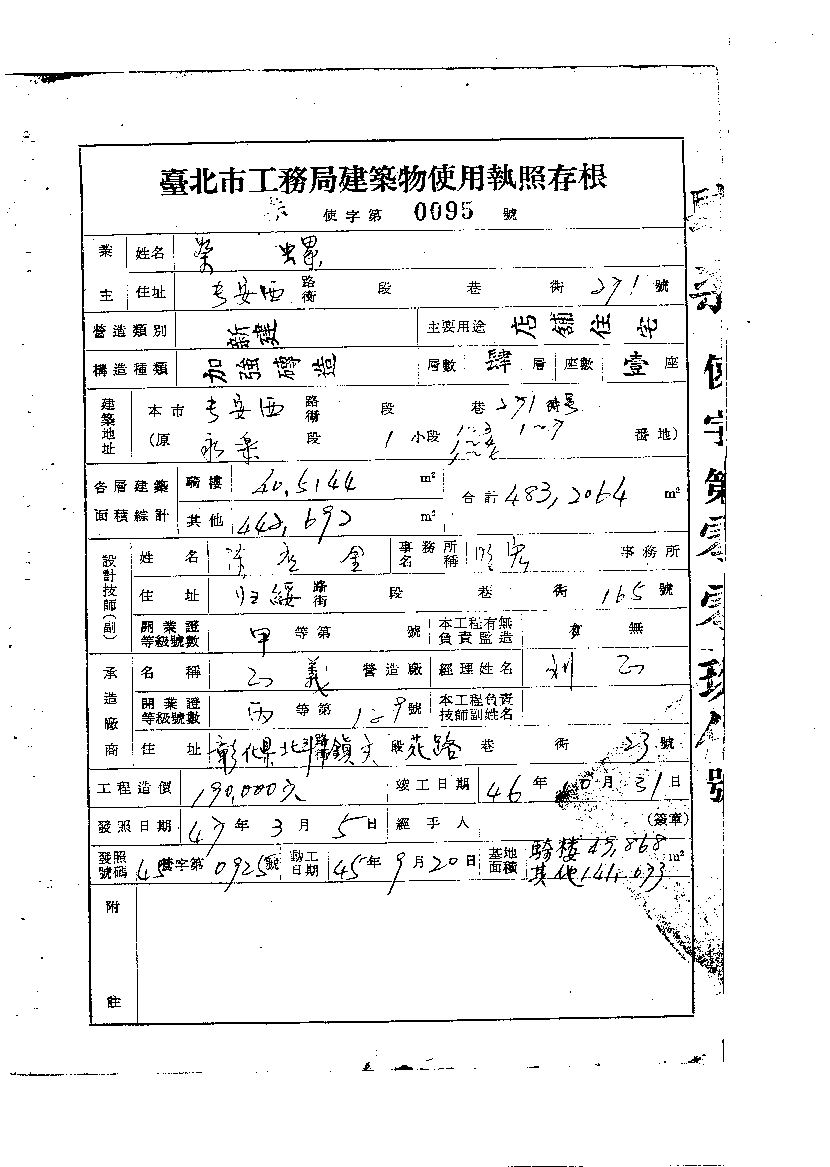 臺北市工務局建築物使用執照存根
使字第 0095 號
業主 姓名
住址 長安西 路街 段 巷 街 271 號
營造類別 新建 主要用途 店舖住宅
構造種類 加強磚造 層數 肆 層 座數 壹 座
建築地址 本市 長安西 路街 段 巷 271 街號
(原 永樂 段 1 小段 番地)
各層建築面積綜計 騎樓 40.5144 m² 合計 483,2064 m²
其他 442,692 m²
設計技師(副) 姓名 事務所名稱 事務所
住址 歸綏 路街 段 巷 街 165 號
開業證等級號數 甲 等第 號 本工程有無負責監造 有 無
承造廠商 名稱 正義 營造廠 經理姓名 劉正
開業證等級號數 丙 等第 129 號 本工程負責技師副姓名
住址 彰化県北斗鎮文 路街 段 苑路 巷 街 23 號
工程造價 190,000元 竣工日期 46 年 10 月 31 日
發照日期 47 年 3 月 5 日 經手人 (簽章)
發照號碼 45 營字第 0925 號 動工日期 45 年 9 月 20 日 基地面積 騎楼 49,868 m²
其他 141,073
附註
使字第零零玖
號